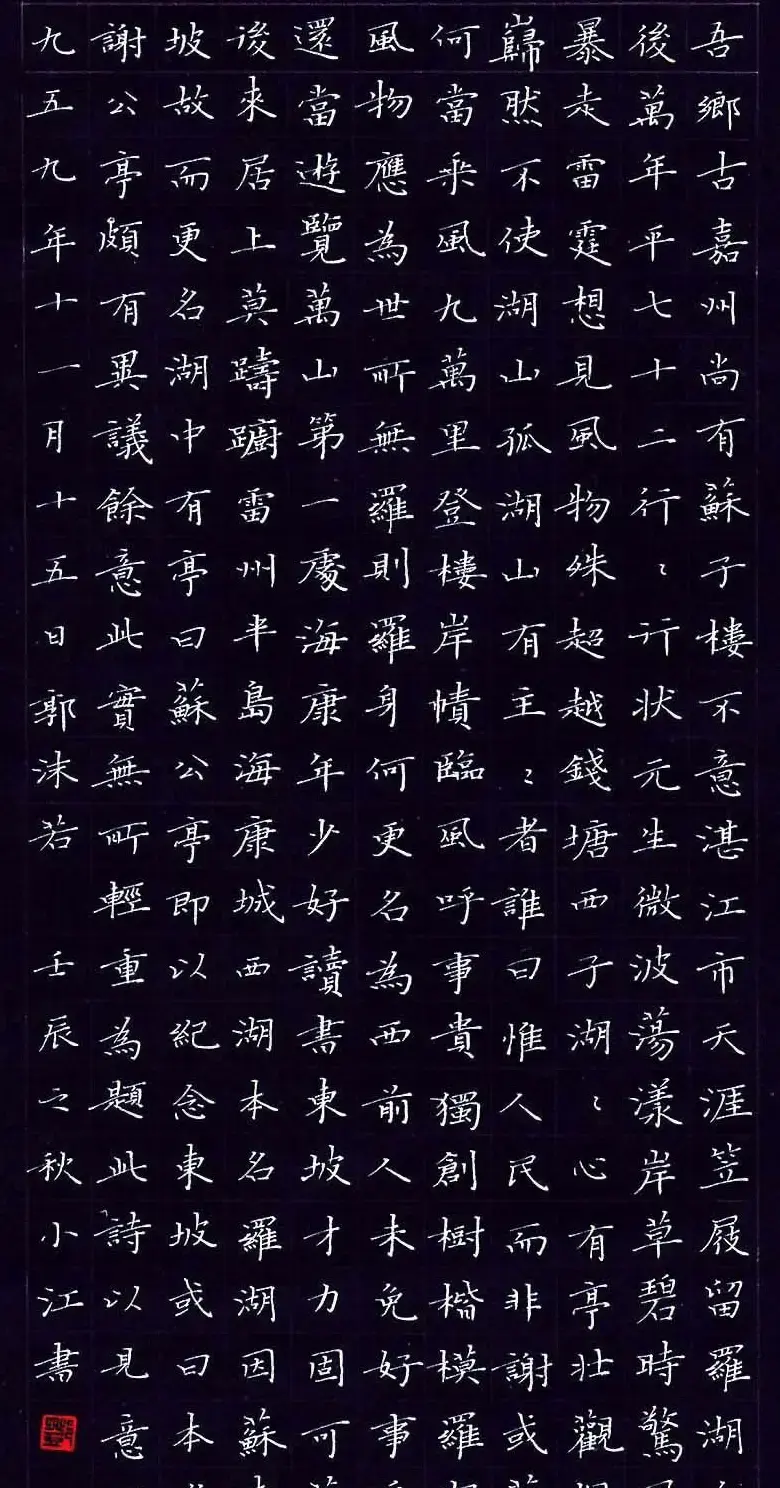 吾鄉古嘉州尚有蘇子樓不意湛江市天涯笠屐留羅湖
後萬年平七十二行〻行狀元生微波蕩漾岸草碧時驚
暴走雷霆想見風物殊超越錢塘西子湖〻心有亭壯觀
巋然不使湖山孤湖山有主〻者誰曰惟人民而非謝或
何當乘風九萬里登樓岸幘臨風呼事貴獨創樹楷模羅
風物應為世所無羅則羅身何更名為西前人未免好事
還當遊覽萬山第一處海康年少好讀書東坡才力固可
後來居上莫躊躕雷州半島海康城西湖本名羅湖因蘇
坡故而更名湖中有亭曰蘇公亭即以紀念東坡或曰本
謝公亭頗有異議餘意此實無所輕重為題此詩以見意
九五九年十一月十五日郭沫若 壬辰之秋小江書